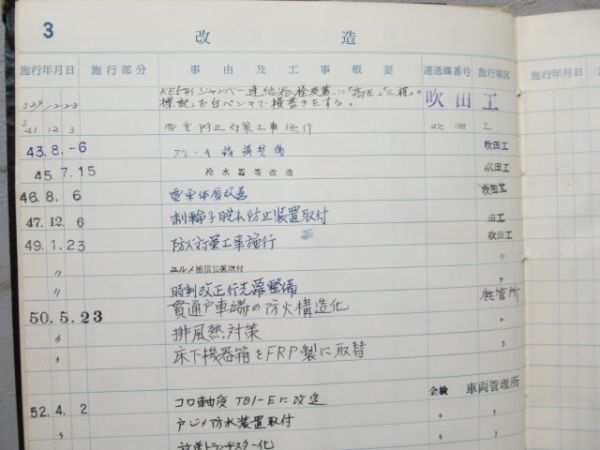 3
改造
施行年月日 施行部分 事由及工事概要 連通線番号 施行場区
KE5形ジャンパー連結器栓受蓋に「高圧」「三相」の
S39 12 23 標記を白ペンキで横書きをする。 吹田工
S41 12 3 事故防止対策工事施行 吹田工
43.8.-6 ブレーキ 整備 吹田工
45.7.15 冷水器等改造
46.8.6 電車体質改善 吹田工
47.12.6 制輪子脱れ防止装置取付 田工
49.1.23 防火対策工事施行 吹田工
〃 取付 〃
〃 時刻改正行先幕整備 鹿管所
50.5.23 貫通戸車端の防火構造化 〃
〃 排風熱対策 〃
〃 床下機器箱をFRP製に取替 〃
52.4.2 コロ軸受 TB1-Eに改造 全検 車両管理所
〃 戸じめ防水装置取付 〃 〃
トランジスター化